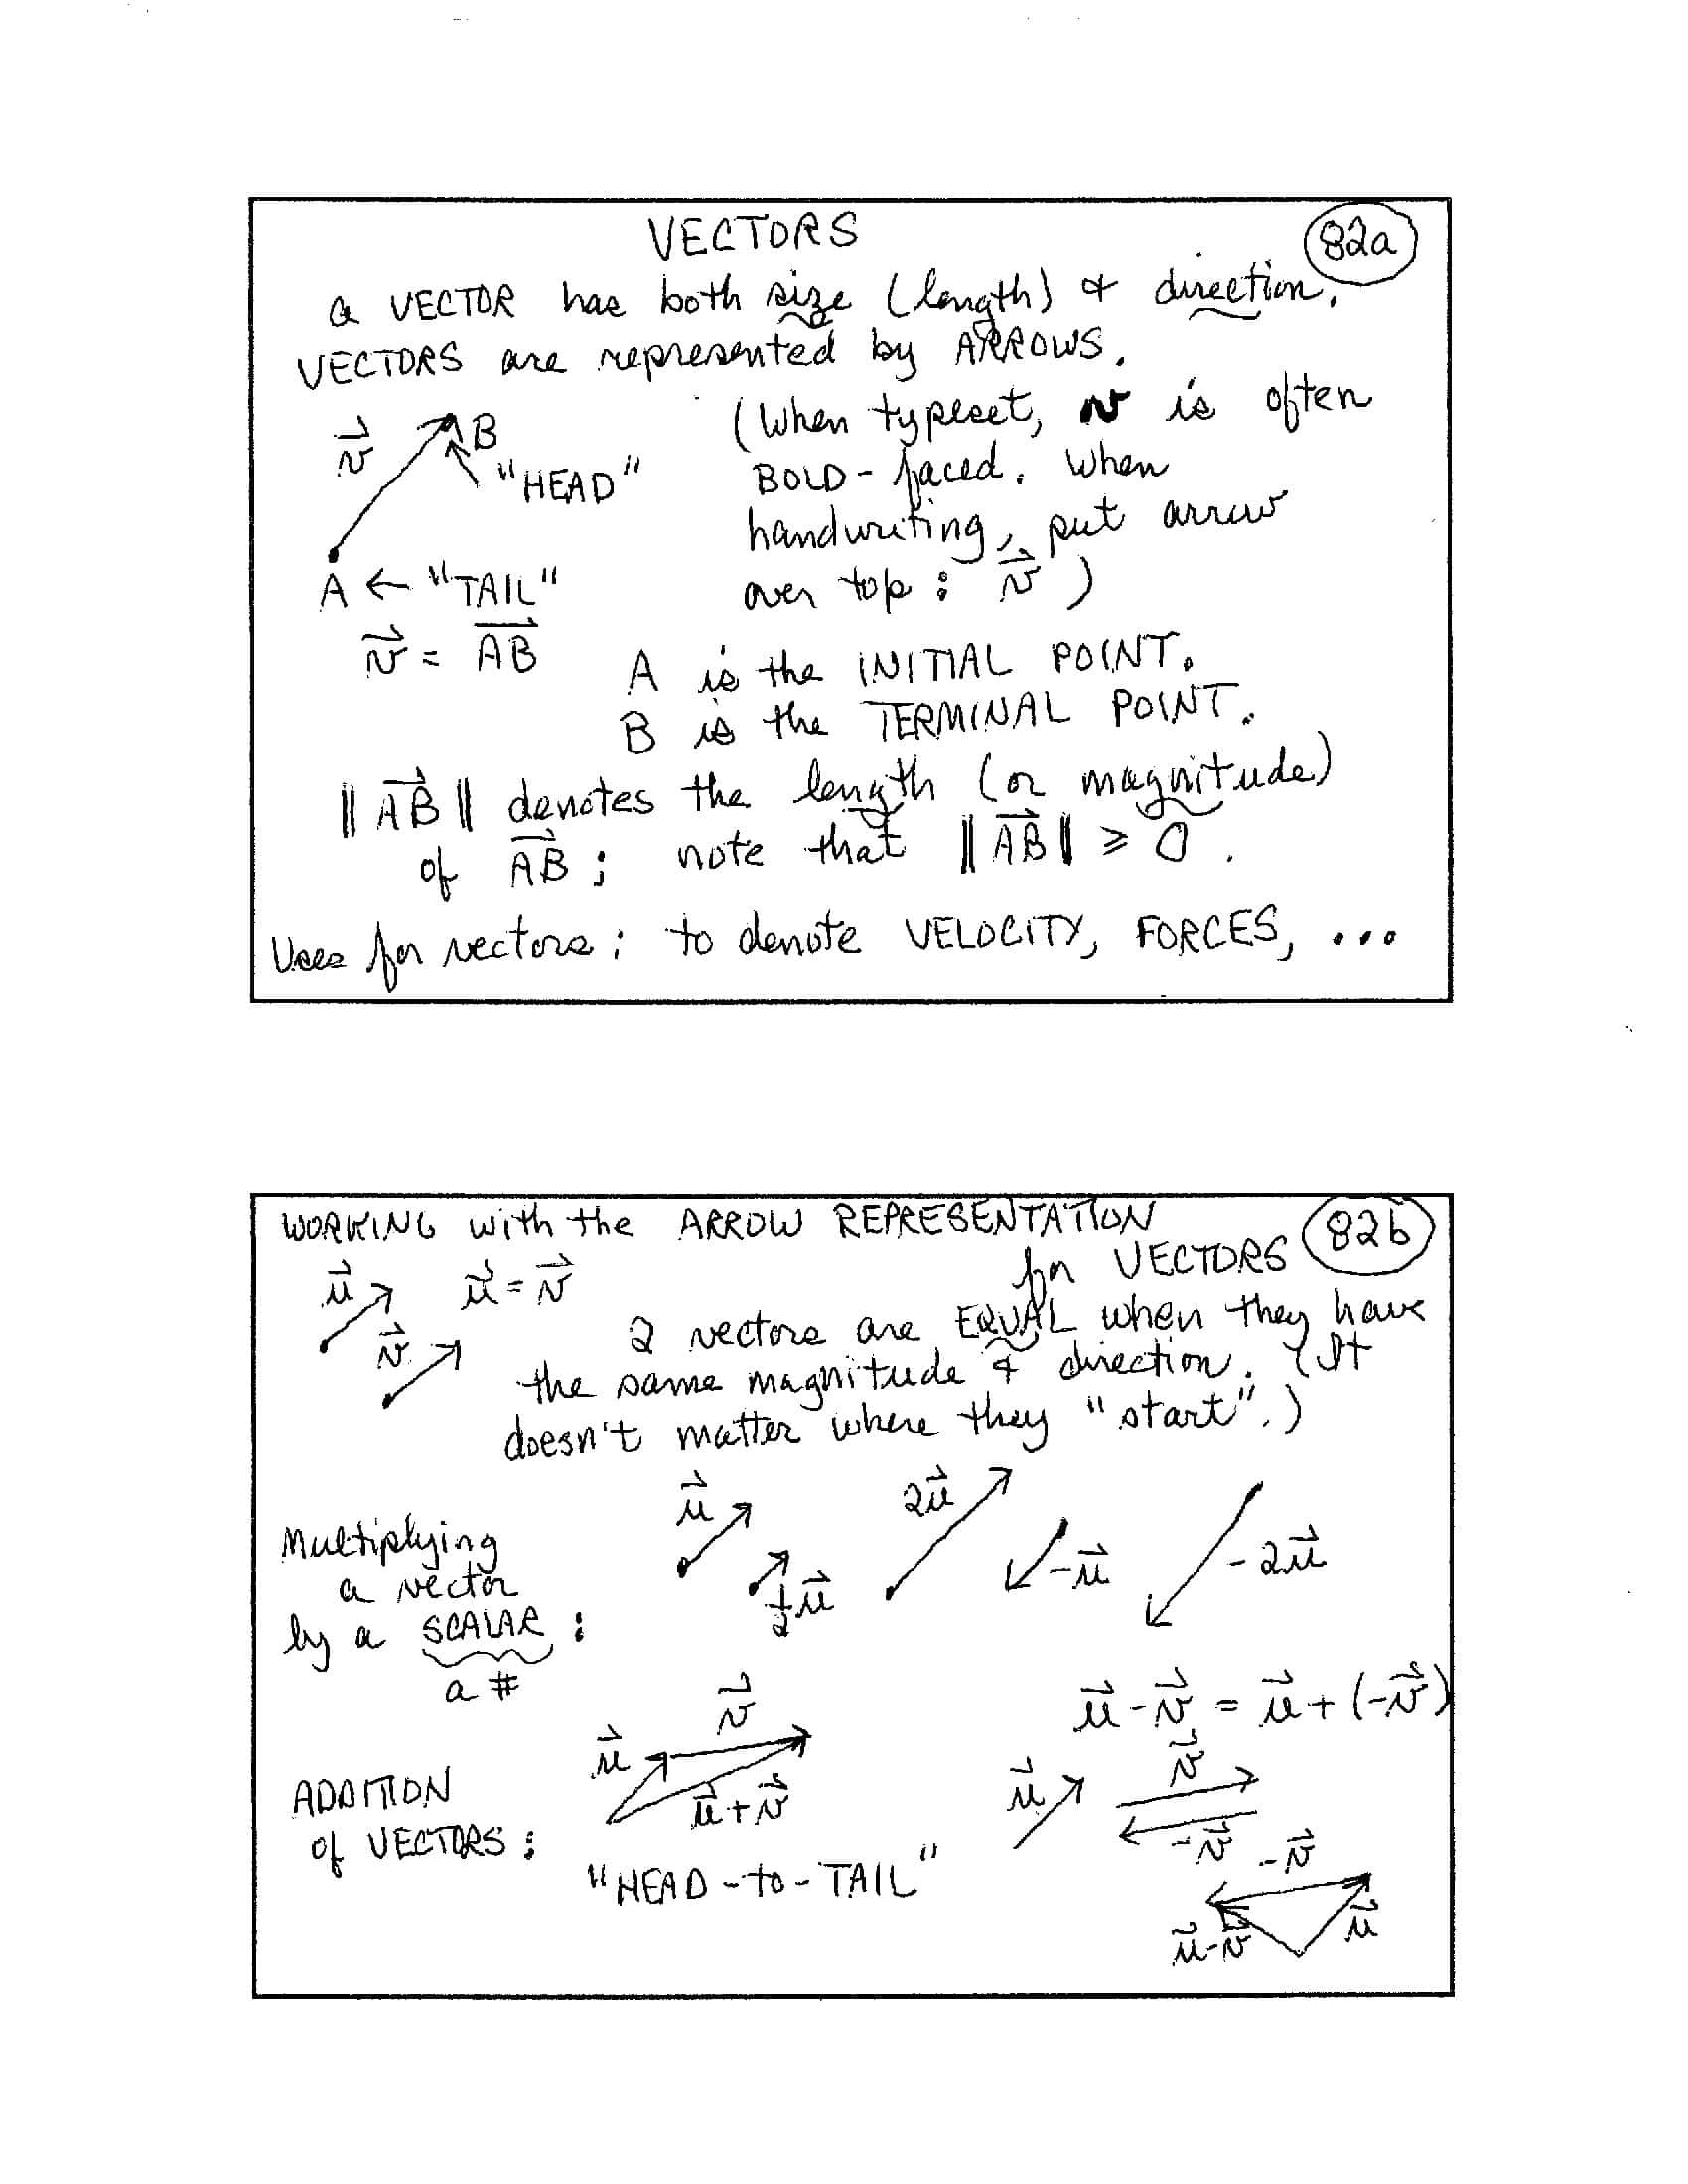 VECTORS
82a
a VECTOR has both size (length) & direction.
VECTORS are represented by ARROWS.
v⃗ B
"HEAD"
A ← "TAIL"
v⃗ = A͞B⃗
(When typeset, v is often
BOLD-faced. When
handwriting, put arrow
over top: v⃗ )
A is the INITIAL POINT.
B is the TERMINAL POINT.
‖AB⃗‖ denotes the length (or magnitude)
of AB⃗; note that ‖AB⃗‖ ≥ 0.
Uses for vectors: to denote VELOCITY, FORCES, ...
WORKING with the ARROW REPRESENTATION
for VECTORS
82b
u⃗ u⃗ = v⃗
v⃗
2 vectors are EQUAL when they have
the same magnitude & direction. (It
doesn't matter where they "start".)
Multiplying
a vector
by a SCALAR:
a #
u⃗ ½u⃗ 2u⃗ -u⃗ -2u⃗
ADDITION
of VECTORS:
u⃗ v⃗
u⃗+v⃗
"HEAD-to-TAIL"
u⃗ - v⃗ = u⃗ + (-v⃗)
u⃗ v⃗
-v⃗
-v⃗
u⃗-v⃗ u⃗